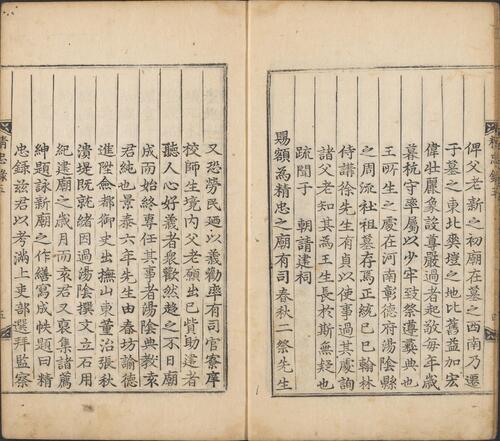 俾父老新之初廟在墓之西南乃遷
于墓之東北奥塏之地比舊益加宏
偉壯麗象設尊嚴過者起敬每年歲
暮杭守率屬以少牢致祭遵彛典也
王所生之處在河南彰德府湯陰縣
之周流社祖墓存焉正統己巳翰林
侍講徐先生有貞以使事過其處詢
諸父老知其為王生長於斯無疑也
疏聞于 朝請建祠
賜額為精忠之廟有司春秋二祭先生
又恐勞民廼以義勸率有司官寮庠
校師生境内父老願出已貲助建者
聽人心好義者衆歡然趍之不日廟
成而始終專任其事者湯陰典教袁
君純也景泰六年先生由春坊諭德
進陞僉都御史出撫山東董治張秋
潰堤既就緒因過湯陰撰文立石用
紀建廟之歲月而袁君又裒集諸薦
紳題詠新廟之作繕寫成帙題曰精
忠錄茲君以考滿上吏部選拜監察
精忠錄
五